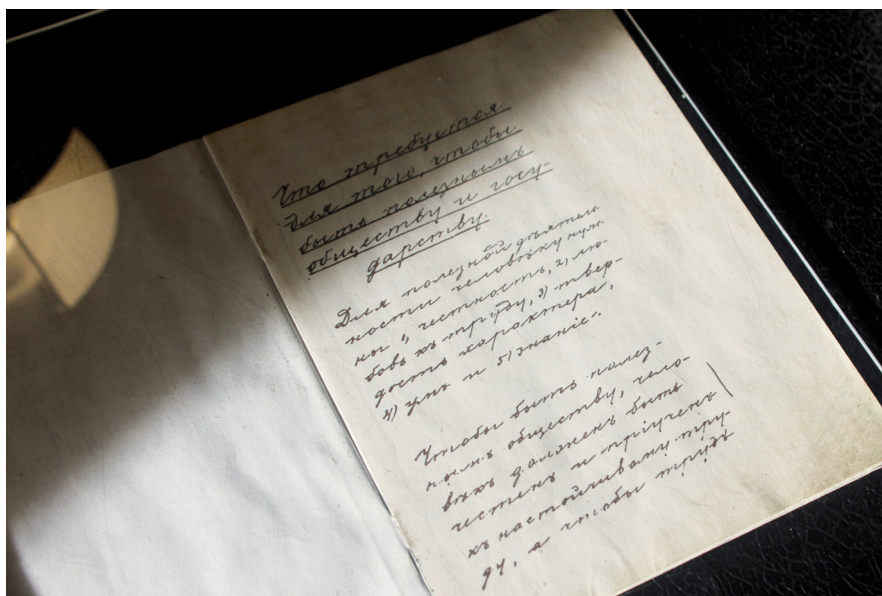 Что требуется
для того, чтобы
быть полезнымъ
обществу и госу-
дарству.
Для полезной дѣятель-
ности человѣку нуж-
ны 1, честность, 2) лю-
бовь къ труду, 3) твер-
дость характера,
4) умъ и 5) знаніе.
Чтобы быть полез-
нымъ обществу, чело-
вѣкъ долженъ быть
честенъ и пріученъ
къ настойчивому тру-
ду, а чтобы трудъ